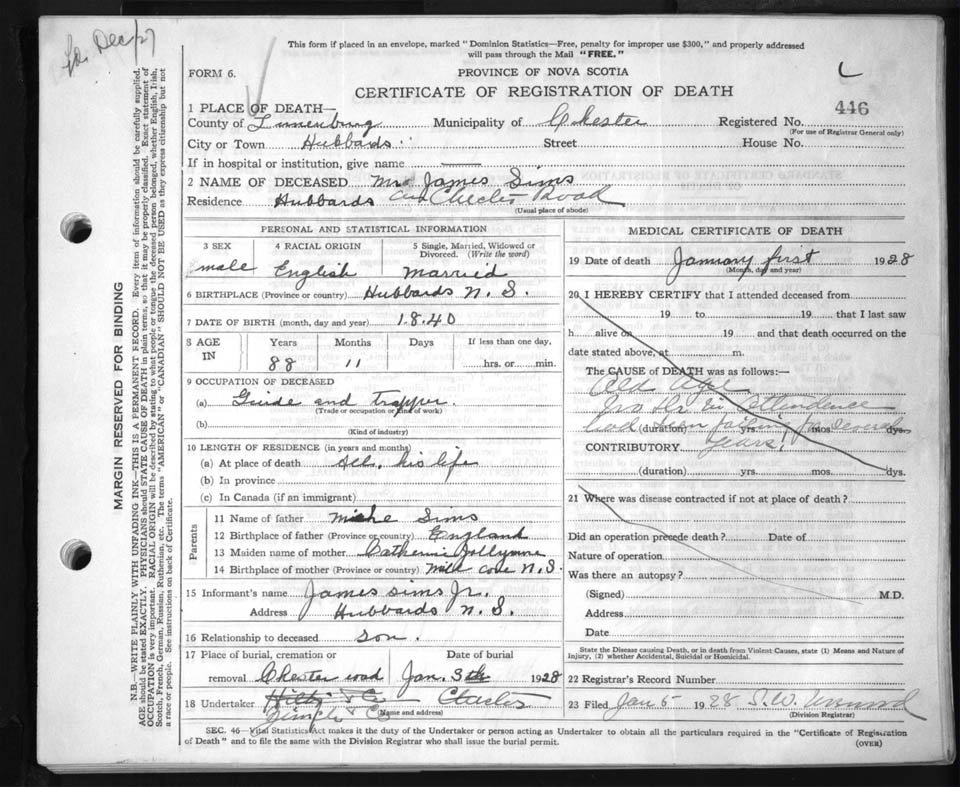 to Dec/27
This form if placed in an envelope, marked "Dominion Statistics—Free, penalty for improper use $300," and properly addressed
will pass through the Mail "FREE."
FORM 6.
PROVINCE OF NOVA SCOTIA
CERTIFICATE OF REGISTRATION OF DEATH
446
1 PLACE OF DEATH—
County of Lunenburg Municipality of Chester Registered No.
(For use of Registrar General only)
City or Town Hubbards Street House No.
If in hospital or institution, give name
2 NAME OF DECEASED Mr James Sims
Residence Hubbards and Chester Road
(Usual place of abode)
PERSONAL AND STATISTICAL INFORMATION
3 SEX 4 RACIAL ORIGIN 5 Single, Married, Widowed or
Divorced. (Write the word)
male English Married
6 BIRTHPLACE (Province or country) Hubbards N. S.
7 DATE OF BIRTH (month, day and year) 1840
8 AGE IN Years Months Days If less than one day,
88 11 hrs. or min.
9 OCCUPATION OF DECEASED
(a) Guide and trapper.
(Trade or occupation or kind of work)
(b)
(Kind of industry)
10 LENGTH OF RESIDENCE (in years and months)
(a) At place of death All his life
(b) In province
(c) In Canada (if an immigrant)
Parents
11 Name of father Sims
12 Birthplace of father (Province or country) England
13 Maiden name of mother Catherine
14 Birthplace of mother (Province or country) Mill cove N.S.
15 Informant's name James Sims Jr.
Address Hubbards N. S.
16 Relationship to deceased son.
17 Place of burial, cremation or Date of burial
removal Chester road Jan. 3th 1928
18 Undertaker Chester
(Name and address)
MEDICAL CERTIFICATE OF DEATH
19 Date of death January first 1928
(Month, day and year)
20 I HEREBY CERTIFY that I attended deceased from
19 to 19 that I last saw
h alive on 19 and that death occurred on the
date stated above, at m.
The CAUSE of DEATH was as follows:—
Old Age
No Dr in Attendence
had been failing for several
(duration) yrs. mos. dys.
years
CONTRIBUTORY
(duration) yrs. mos. dys.
21 Where was disease contracted if not at place of death?
Did an operation precede death? Date of
Nature of operation
Was there an autopsy?
(Signed) M.D.
Address
Date
State the Disease causing Death, or in death from Violent Causes, state (1) Means and Nature of
Injury, (2) whether Accidental, Suicidal or Homicidal.
22 Registrar's Record Number
23 Filed Jan 5 1928 S. W.
(Division Registrar)
SEC. 46—Vital Statistics Act makes it the duty of the Undertaker or person acting as Undertaker to obtain all the particulars required in the "Certificate of Registration
of Death" and to file the same with the Division Registrar who shall issue the burial permit.
(OVER)
MARGIN RESERVED FOR BINDING
N.B.—WRITE PLAINLY WITH UNFADING INK—THIS IS A PERMANENT RECORD. Every item of information should be carefully supplied.
AGE should be stated EXACTLY. PHYSICIANS should STATE CAUSE OF DEATH in plain terms, so that it may be properly classified. Exact statement of
OCCUPATION is very important. RACIAL ORIGIN will be described by stating to what people or tongue the deceased person belonged, whether English, Irish,
Scotch, French, German, Russian, Ruthenian, etc. The terms "AMERICAN" or "CANADIAN" SHOULD NOT BE USED as they express citizenship but not
a race or people. See instructions on back of Certificate.